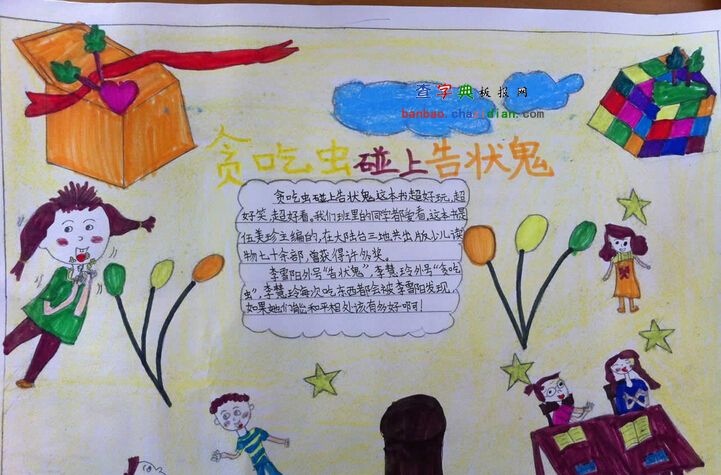 查字典板报网
banbao.chazidian.com
贪吃虫碰上告状鬼
贪吃虫碰上告状鬼这本书超好玩,超
好笑,超好看。我们班里的同学都爱看,这本书是
伍美珍主编的,在大陆台三地共出版少儿读
物七十余部,曾获得许多奖。
李雪阳外号“告状鬼”,李慧玲外号“贪吃
虫”,李慧玲每次吃东西都会被李雪阳发现,
如果她们能和平相处该有多好啊可!